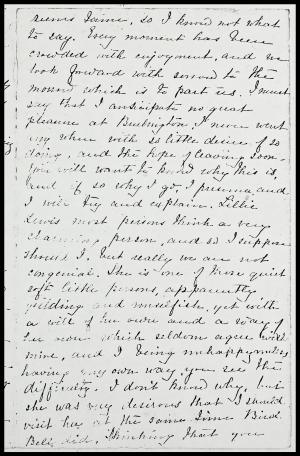 seems tame, so I know not what
to say. Every moment has been
crowded with enjoyment, and we
look forward with sorrow to the
morrow which is to part us. I must
say that I anticipate no great
pleasure at Burlington. I never went
any where with so little desire of so
doing, and the hope of leaving soon.
You will want to know why this is,
and if so why I go, I presume, and
I will try and explain. Lillie
Lewis most persons think a very
charming person, and so I suppose
should I, but really we are not
congenial. She is one of those quiet
soft little persons, apparently
yielding and unselfish, yet with
a will of her own and a way of
her own which seldom agree with
mine, and I being unhappy unless
having my own way, you see the
difficulty. I don't know why, but
she was very desirous that I should
visit her at the same time Bird
Bell did, thinking that you